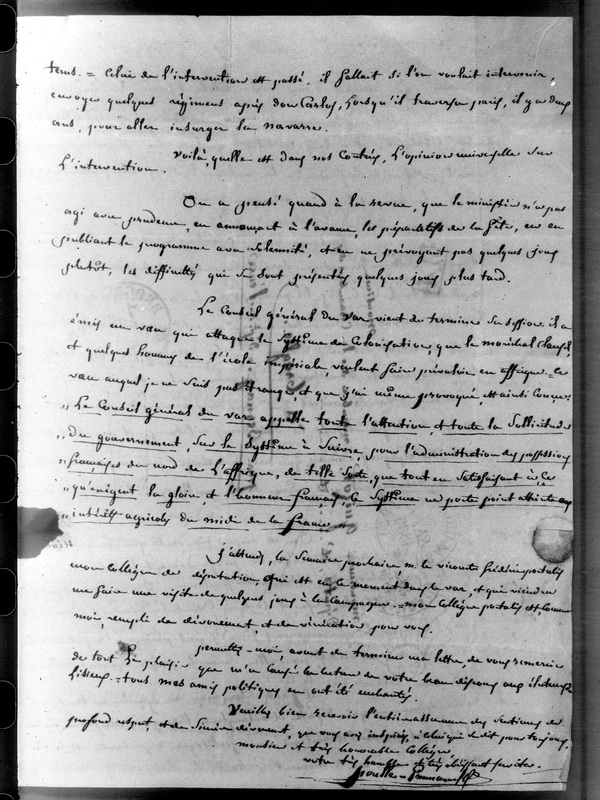 tems. = Celui de l'intervention est passé. il fallait si l'on voulait intervenir,
envoyer quelques régimens après don Carlos, lorsqu'il traversa paris, il y a deux
ans, pour aller insurger la navarre.
Voilà, quelle est dans nos Contrées, l'opinion universelle sur
L'intervention.
On a pensé quand à la revue, que le ministère n'a pas
agi avec prudence, en annonçant à l'avance, les préparatifs de la fête, et en
publiant le programme avec solemnité, et en ne prévoyant pas quelques jours
plutôt, les difficultés qui se sont présentées quelques jours plus tard.
Le Conseil général du var vient de terminer sa session. il a
émis un vœu qui attaque le système de Colonisation, que le maréchal Clausel,
et quelques hommes de l'école impériale, veulent faire prévaloir en affrique. = ce
vœu auquel je ne suis pas étranger, et que j'ai même provoqué, est ainsi conçu:
" Le Conseil général du var appelle toute l'attention, et toute la Sollicitude
" Du gouvernement, sur le Système à Suivre, pour l'administration des possessions
" françaises du nord de L'affrique, de telle Sorte, que tout en Satisfaisant à ce
" qu'exigent la gloire, et l'honneur français, le Système ne porte point atteinte aux
" intérêts agricoles du midi de la france "
J'attends, la Semaine prochaine, m. le vicomte frédéric portalis
mon Collègue de députation, qui est en ce moment dans le var, et qui viendra
me faire une visite de quelques jours à la Campagne. = mon Collègue portalis est, comme
moi, rempli de dévouement, et de vénération pour vous.
permettez-moi, avant de terminer ma lettre, de vous remercier
de tout Le plaisir que m'a Causé la lecture de votre beau discours aux électeurs de
Lisieux. = tous mes amis politiques en ont été enchantés.
Veuillez bien recevoir l'entière assurance des Sentimens de
profond respect, et de Sincère dévouement, que vous avez inspirés, à celui qui se dit pour toujours,
monsieur et très honorable Collègue,
votre très humble et très obéissant serviteur.